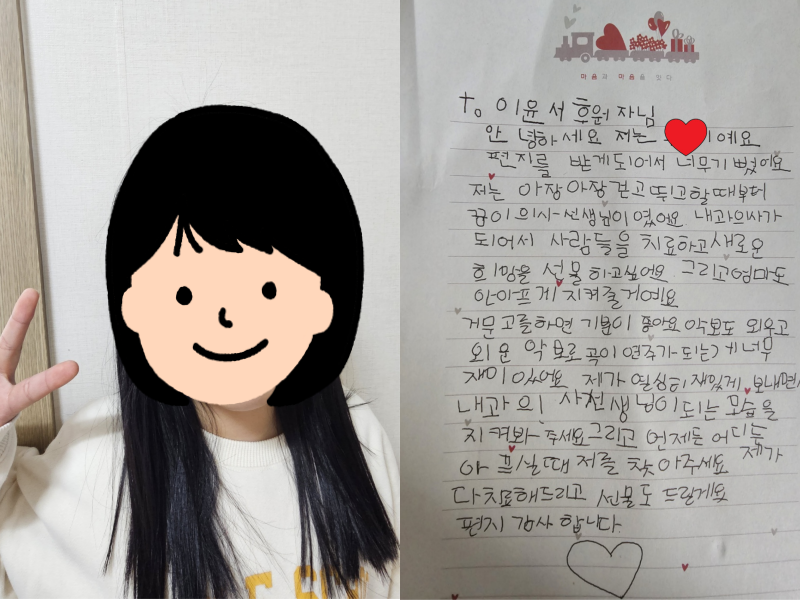 마음과 마음을 잇다
to 이윤서 후원자님
안녕하세요 저는 이예요
편지를 받게되어서 너무기뻤어요
저는 아장아장 걷고 뛰고할때부터
꿈이 의사선생님이였어요 내과의사가
되어서 사람들을 치료하고새로운
희망을 선물하고싶어요 그리고엄마도
안아프게 지켜줄게예요
거문고를하면 기분이 좋아요 악보도 외우고
외운 악보로 곡이 연주가 되는게너무
재미있어요 제가 열심히재밌게 보내면서
내과의사선생님이되는 모습을
지켜봐주세요그리고 언제든 어디든
아프실때 저를 찾아주세요 제가
다치료해드리고 선물도 드릴게요
편지 감사합니다